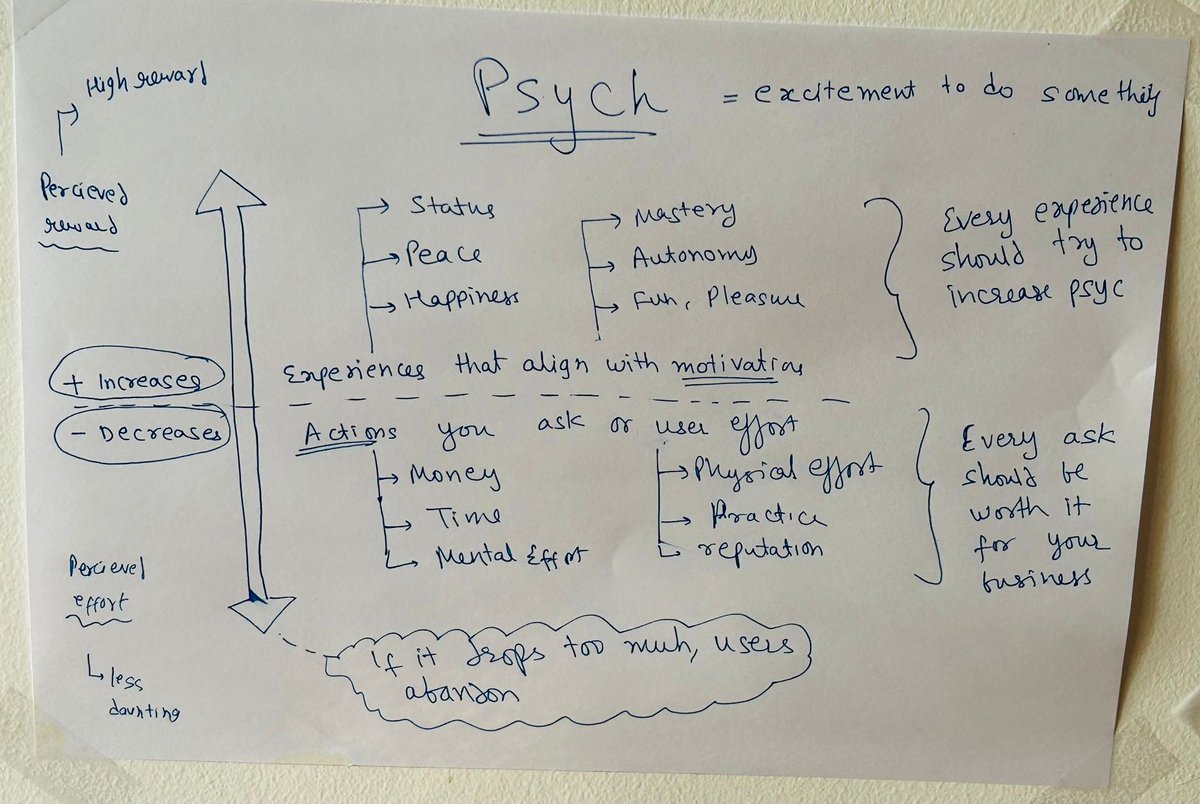 Psych = excitement to do something
High reward
Percieved
reward
Status
Peace
Happiness
Mastery
Autonomy
Fun, Pleasure
Every experience
should try to
increase psyc
+ Increases
Experiences that align with motivation
- Decreases
Actions you ask or user effort
Money
Time
Mental Effort
Physical effort
Practice
reputation
Every ask
should be
worth it
for your
business
Percievel
effort
less
daunting
If it drops too much, users
abandon